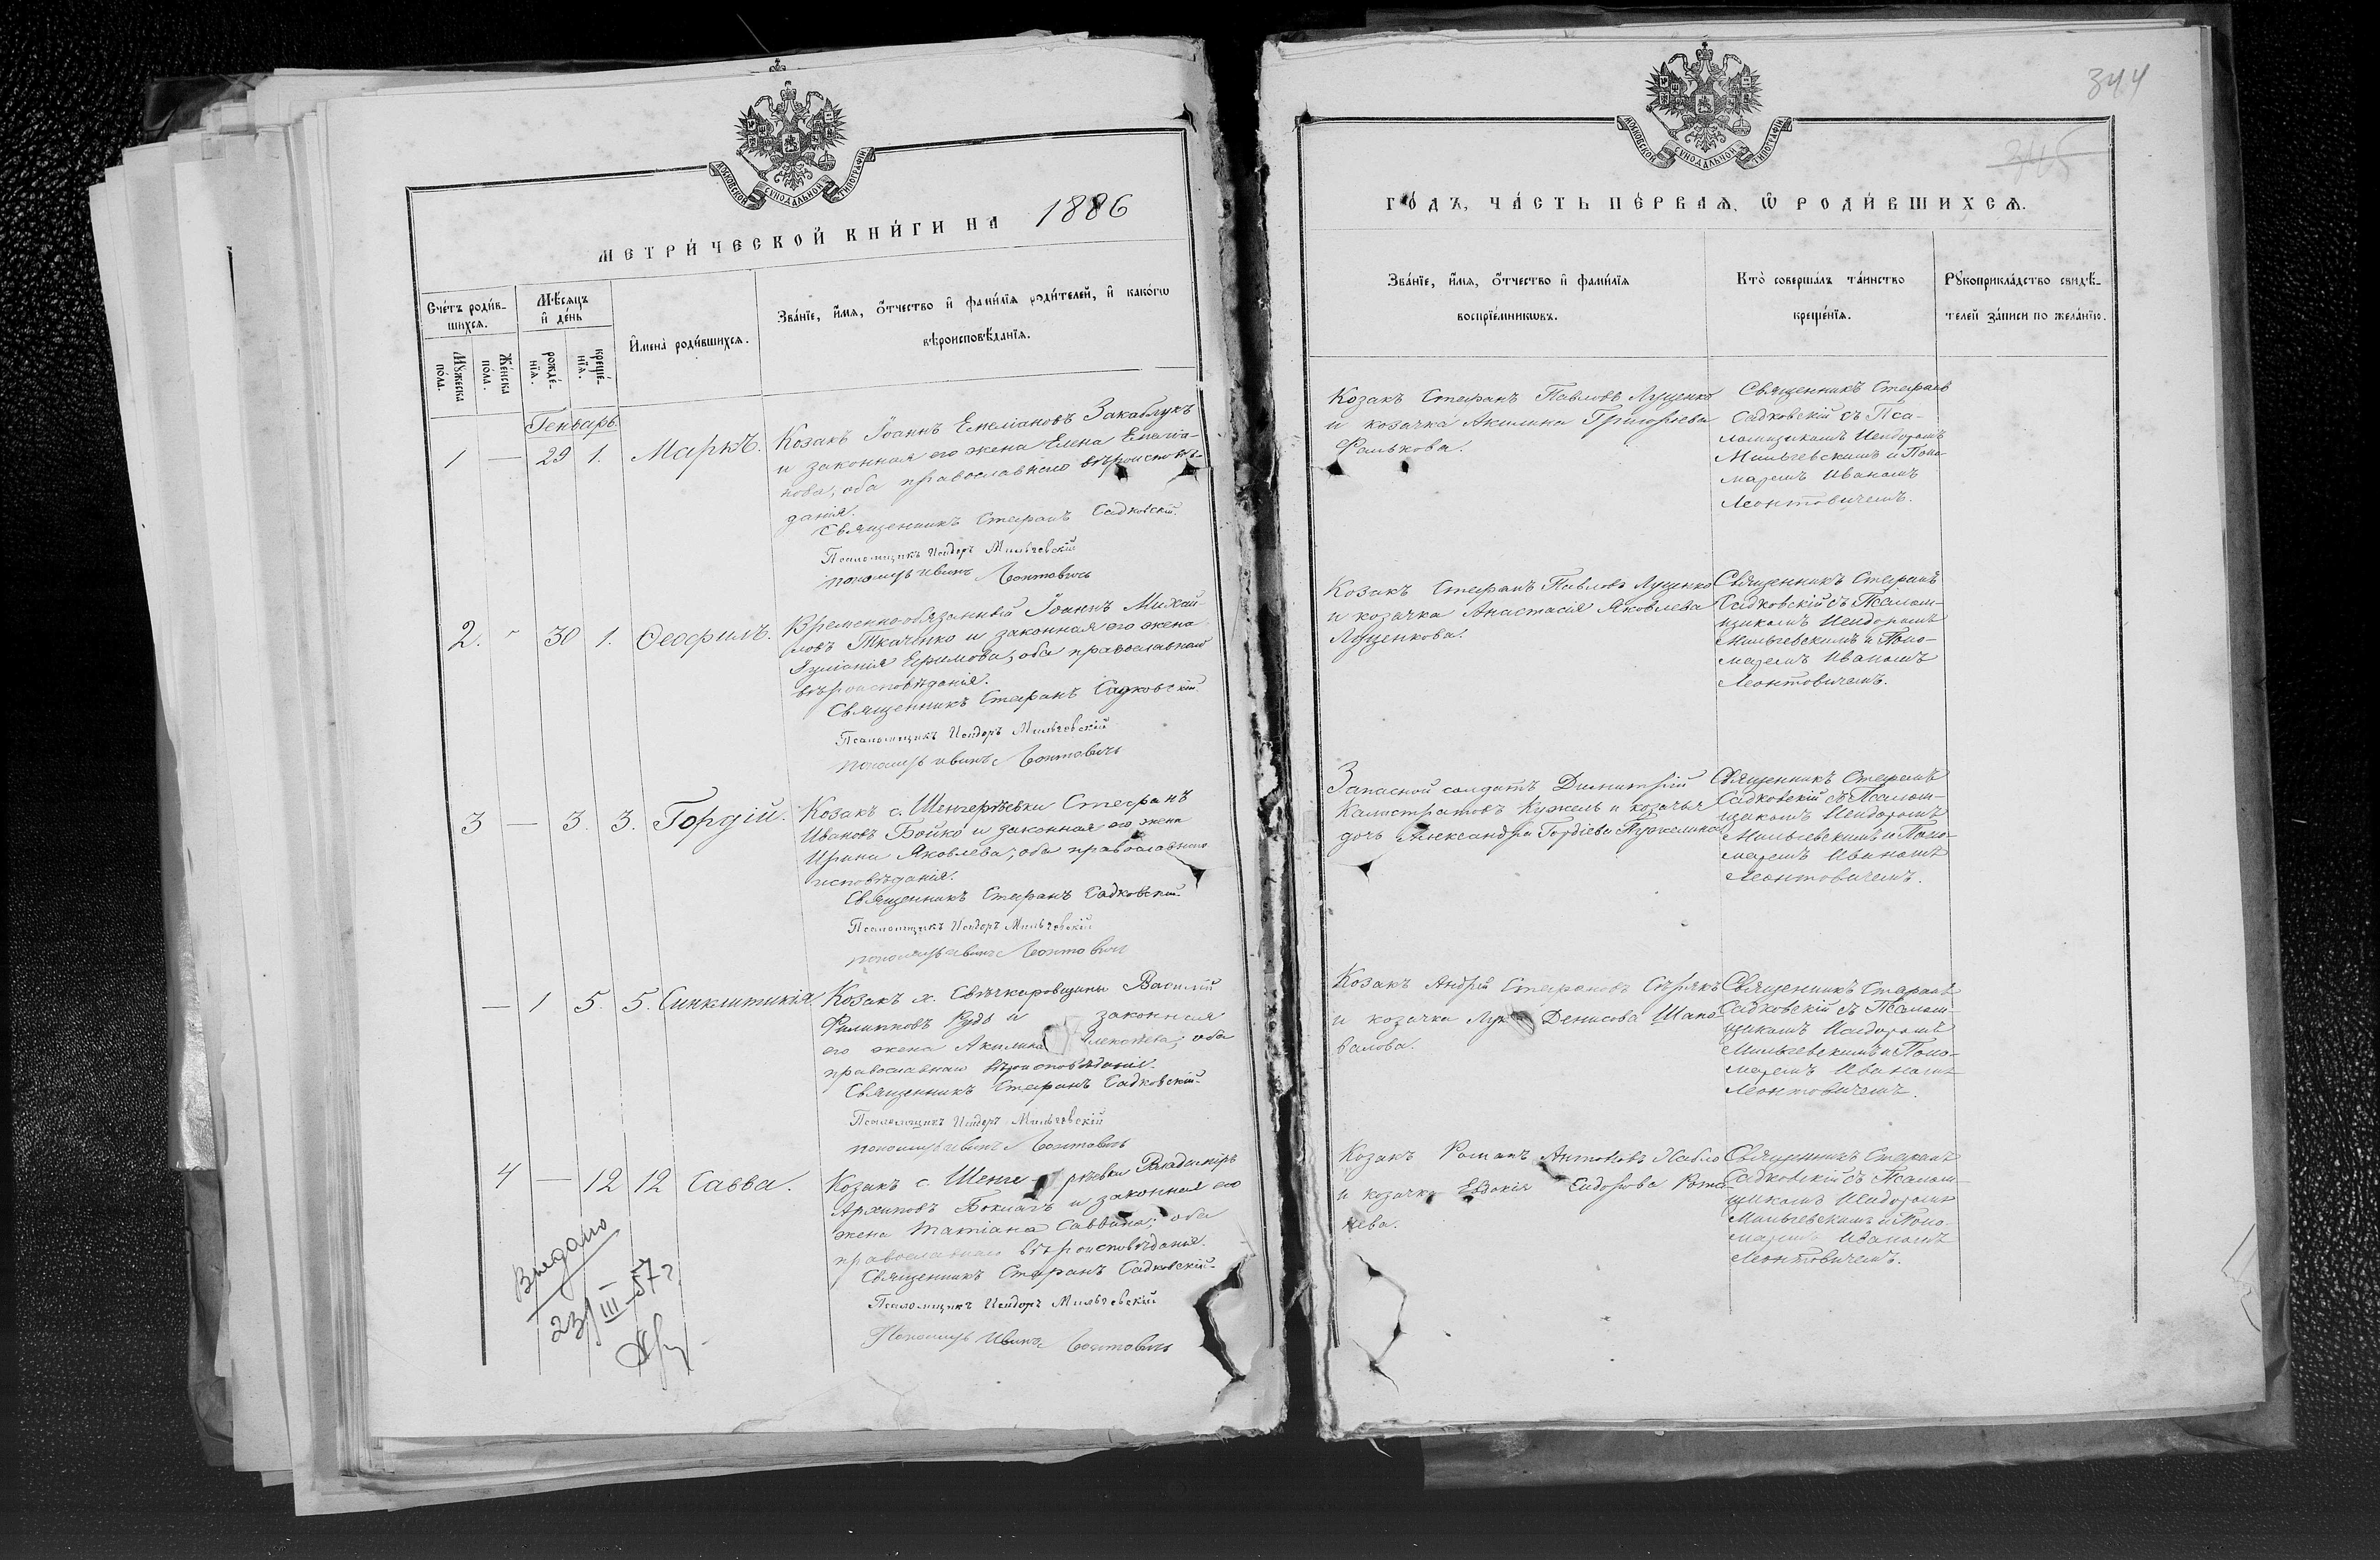 МОСКОВСКОЙ СУНОДАЛЬНОЙ ТИПОГРАФІИ
МЕТРИ́ЧЕСКОЙ КНИ́ГИ НА 1886
Сче́тъ роди́в-
шихсѧ.
Мꙋ́жеска
по́ла.
Же́нска
по́ла.
Мѣ́сѧцъ
и҆ де́нь
рожде́-
нїѧ.
креще́-
нїѧ.
И҆мена̀ роди́вшихсѧ.
Зва́нїе, и҆́мѧ, ѻ҆́тчество и҆ фами́лїѧ роди́телей, и҆ како́гѡ
вѣроисповѣ́данїѧ.
Генварь.
1 — 29 1. Маркъ.
Козакъ Іоаннъ Емеліановъ Закаблукъ
и законная его жена Елена Емеліа-
нова, оба православнаго вѣроисповѣ-
данія.
Священникъ Стефанъ Садковскій.
Псаломщикъ Исидоръ Мильгевскій
пономарь Иванъ Леонтовичъ
2. 30 1. Ѳеофилъ.
Временно-обязанный Іоаннъ Михай-
ловъ Ткаченко и законная его жена
Іуліанія Ефимова, оба православнаго
вѣроисповѣданія.
Священникъ Стефанъ Садковскій.
Псаломщикъ Исидоръ Мильгевскій
пономарь Иванъ Леонтовичъ
3 — 3. 3. Гордій.
Козакъ с. Шенгерѣевки Стефанъ
Ивановъ Бойко и законная его жена
Ирина Яковлева, оба православнаго
исповѣданія.
Священникъ Стефанъ Садковскій.
Псаломщикъ Исидоръ Мильгевскій
пономарь Иванъ Леонтовичъ
— 1 5. 5. Синклитикія.
Козакъ х. Свѣчкаровщины Василій
Филипповъ Рудь и законная
его жена Акилина оба
православнаго вѣроисповѣданія.
Священникъ Стефанъ Садковскій.
Псаломщикъ Исидоръ Мильгевскій
пономарь Иванъ Леонтовичъ
4 — 12 12 Савва.
Козакъ с. Шенге-рѣевки Владимиръ
Архиповъ Боклагъ и законная его
жена Татіана Саввина; оба
православнаго вѣроисповѣданія.
Священникъ Стефанъ Садковскій.
Псаломщикъ Исидоръ Мильгевскій
Пономарь Иванъ Леонтовичъ
Выдано
23/III-57 г.
344
345
МОСКОВСКОЙ СУНОДАЛЬНОЙ ТИПОГРАФІИ
ГО́ДЪ, ЧА́СТЬ ПЕ́РВАѦ, Ѡ҆ РОДИ́ВШИХСѦ.
Зва́нїе, и҆́мѧ, ѻ҆́тчество и҆ фами́лїѧ
воспрїе́мникѡвъ.
Кто̀ соверша́лъ та́инство
креще́нїѧ.
Рꙋкоприкла́дство свидѣ́-
телей за́писи по жела́нїю.
Козакъ Стефанъ Павловъ Луценко
и козачка Акилина Григорьева
Фалькова.
Священникъ Стефанъ
Садковскій съ Пса-
ломщикомъ Исидоромъ
Мильгевскимъ и Поно-
маремъ Иваномъ
Леонтовичемъ.
Козакъ Стефанъ Павловъ Луценко
и козачка Анастасія Яковлева
Луценкова.
Священникъ Стефанъ
Садковскій съ Псалом-
щикомъ Исидоромъ
Мильгевскимъ и Поно-
маремъ Иваномъ
Леонтовичемъ.
Запасной солдатъ Димитрій
Калистратовъ Кужель и козачья
дочь Александра Гордіева
Священникъ Стефанъ
Садковскій съ Псалом-
щикомъ Исидоромъ
Мильгевскимъ и Поно-
маремъ Иваномъ
Леонтовичемъ.
Козакъ Андрей Стефановъ Сѣрякъ
и козачка Денисова Шапо-
валова.
Священникъ Стефанъ
Садковскій съ Псалом-
щикомъ Исидоромъ
Мильгевскимъ и Поно-
маремъ Иваномъ
Леонтовичемъ.
Козакъ Романъ Антоновъ
и козачка Евдокія Сидорова
Священникъ Стефанъ
Садковскій съ Псалом-
щикомъ Исидоромъ
Мильгевскимъ и Поно-
маремъ Иваномъ
Леонтовичемъ.